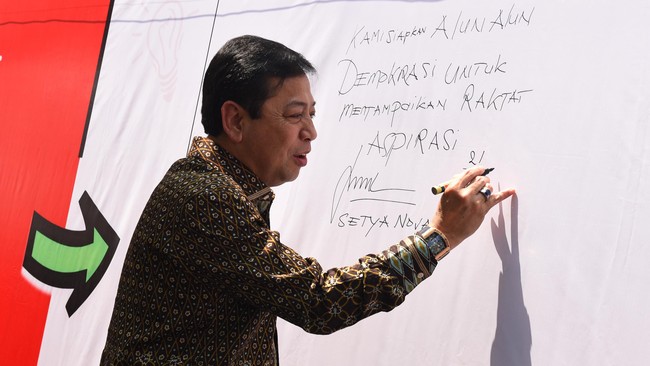 KAMISIAPKAN ALUN ALUN
DEMOKRASI UNTUK
MENYAMPAIKAN RAKYAT
ASPIRASI
21
SETYA NOVA